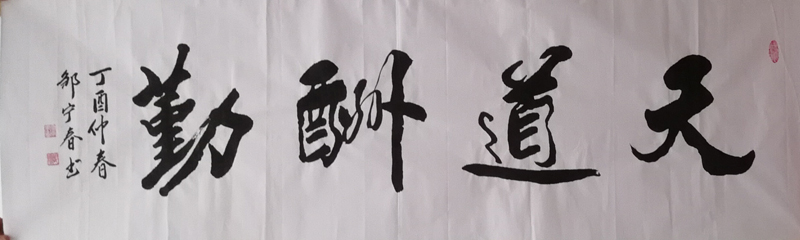 天道酬勤
丁酉仲春
邹宁春书